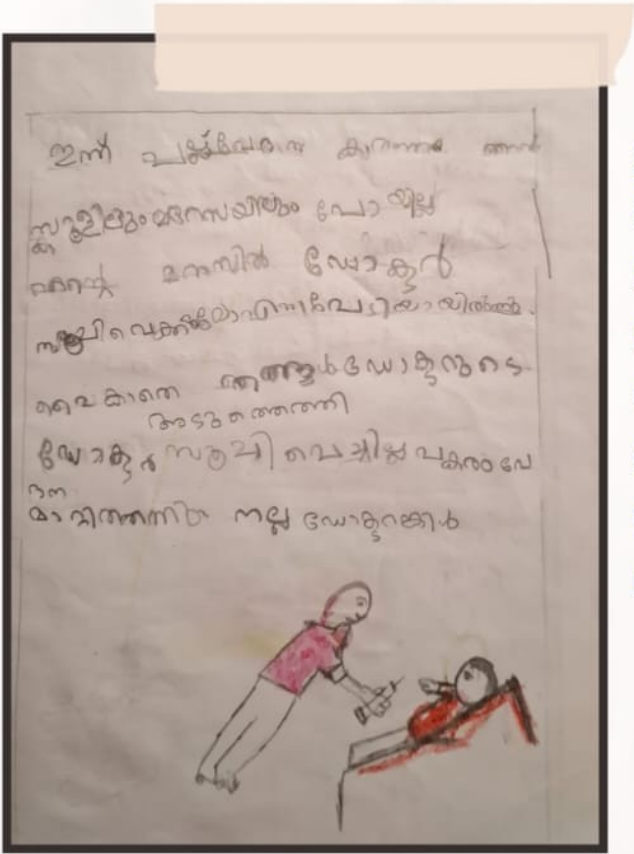 ഇന്ന് പല്ലുവേദന കാരണം ഞാൻ
സ്കൂളിലും മദ്രസയിലും പോയില്ല
എന്റെ മനസിൽ ഡോക്ടർ
സൂചി വെക്കുമോ എന്ന പേടിയായിരുന്നു.
വൈകാതെ ഞങ്ങൾ ഡോക്ടറുടെ
അടുത്തെത്തി
ഡോക്ടർ സൂചി വെച്ചില്ല പകരം വേ
ദന
മാറ്റിത്തന്നു നല്ല ഡോക്ടറങ്കിൾ